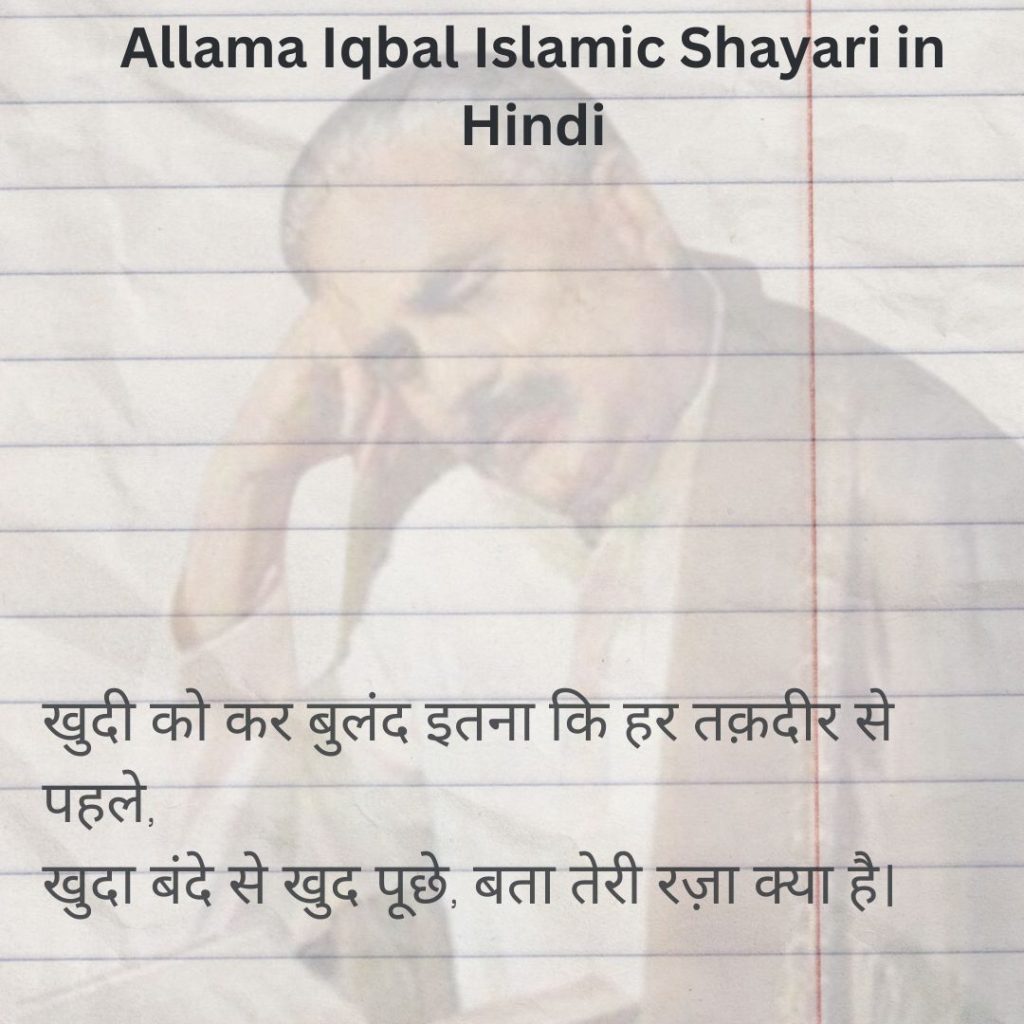 Allama Iqbal Islamic Shayari in
Hindi
खुदी को कर बुलंद इतना कि हर तक़दीर से
पहले,
खुदा बंदे से खुद पूछे, बता तेरी रज़ा क्या है।